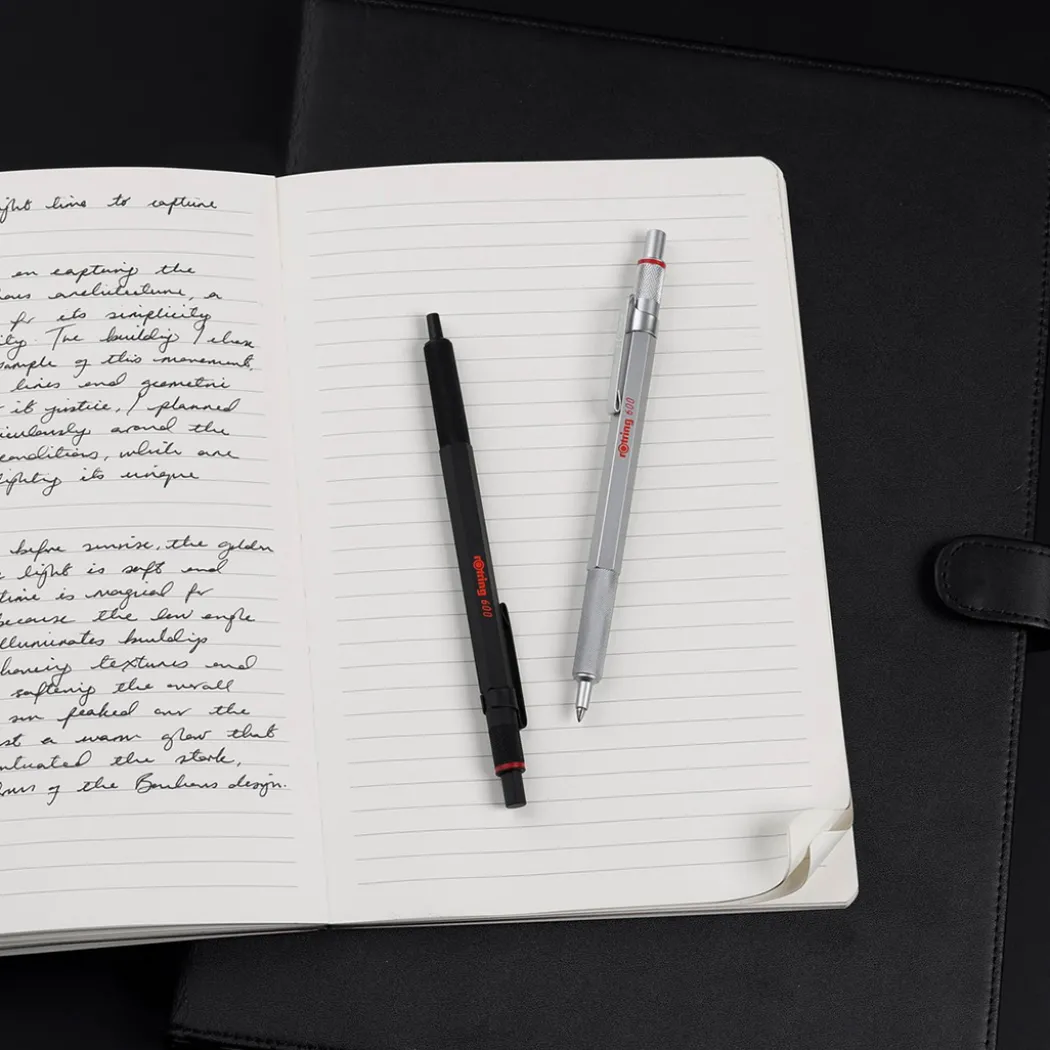 light line to capture
on capturing the
architecture, a
for its simplicity
The building I chose
of this movement,
lines and geometric
it justice, I planned
around the
conditions, which are
its unique
before sunrise, the golden
light is soft and
time is magical for
because the low angle
illuminates buildings
textures and
softening the overall
sun peaked over the
a warm glow that
the stark,
of the Bauhaus design.
rotring 600
rotring 600